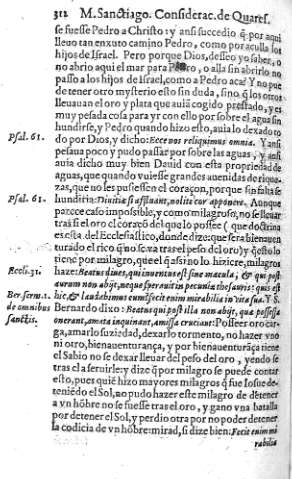 312 M. Sanctiago. Considerac. de Quares.
se fuesse Pedro a Christo: y ansi succedio q̃ por aqui
lleuo tan enxuto camino Pedro, como por aculla los
hijos de Israel. Pero porque Dios, desseo yo saber, o
no abrio aqui el mar para Pedro, o alla sin abrirlo no
passo a los hijos de Israel, como a Pedro aca? Y no pue
de tener otro mysterio esto sin duda, sino q̃ los otros
lleuauan el oro y plata que auiã cogido prestado, y es
muy pesada cosa para yr con ello por sobre el agua sin
hundirse, y Pedro quando hizo esto, auia lo dexado to
Psal. 61. do por Dios, y dicho: Ecce nos reliquimus omnia. Y ansi
pesaua poco y pudo passar por sobre las aguas, y ansi
auia dicho muy bien Dauid con esta propriedad de
aguas, que quando vuiesse grandes auenidas de rique
zas, que no les pusiessen el coraçon, porque sin falta se
Psal. 61. hundiria: Diuitiæ si affluant, nolite cor apponere. Aunque
parece caso impossible, y como milagroso, no se lleuar
tras si el oro el coraçõ del que lo possee (que doctrina
es esta del Ecclesiastico, donde dize: que sera bienauen
turado el rico que no se va tras el peso del oro) y q̃ esto lo
tiene por milagro, que el q̃ assi no lo hiziere, milagros
Eccls. 31. haze: Beatus diues, qui inuentus est sine macula, & qui post
aurum non abijt, neque sperauit in pecuniæ thesauris: quis est
Ber. serm. 1. hic, & laudabimus eum? fecit enim mirabilia in vita sua. Y S.
de omnibus Bernardo dixo: Beatus qui post illa non abijt, quæ possessa
sanctis. onerant, amata inquinant, amissa cruciant: Posseer oro car
ga, amarlo suziedad, dexarlo tormento, no hazer vno
ni otro, bienauenturança, y por bienauenturãça tiene
el Sabio no se dexar lleuar del peso del oro, yendo se
tras el a seruirle: y dize q̃ por milagro se puede contar
esto, pues quiẽ hizo mayores milagros q̃ fue Iosue de
teniẽdo el Sol, no pudo hazer este milagro de detener
a vn hõbre no se fuesse tras el oro, y gano vna batalla
por detener el Sol, y perdio otra por no poder detener
la codicia de vn hõbre: mirad, si dize bien: Fecit enim mi
rabilia